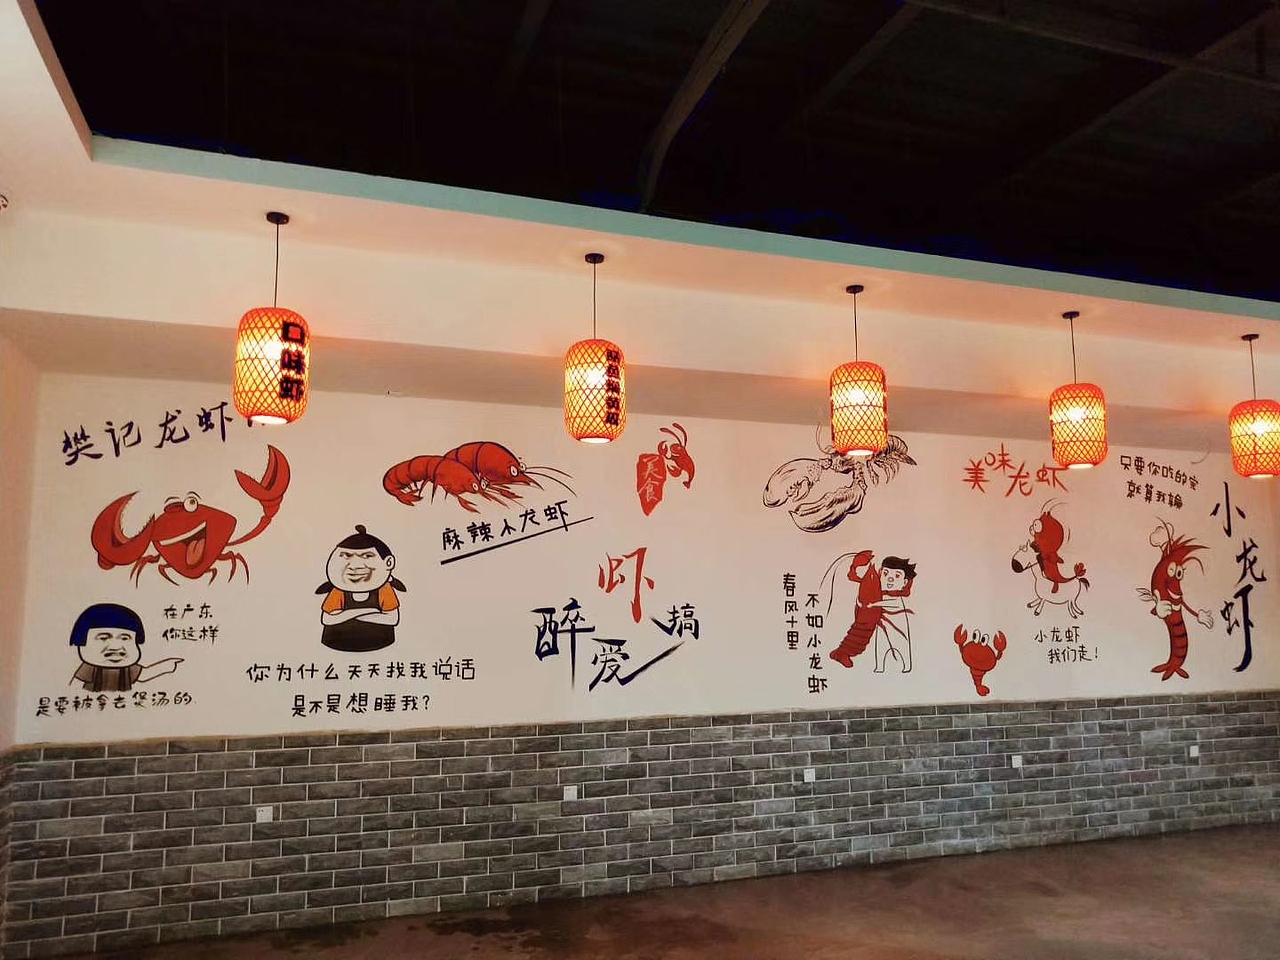 口味虾
樊记龙虾
麻辣小龙虾
美食
美味龙虾
只要你吃的完
就算我输
小龙虾
虾
醉爱人搞
春风十里
不如小龙虾
在广东
你这样
是要被拿去煲汤的
你为什么天天找我说话
是不是想睡我？
小龙虾
我们走！